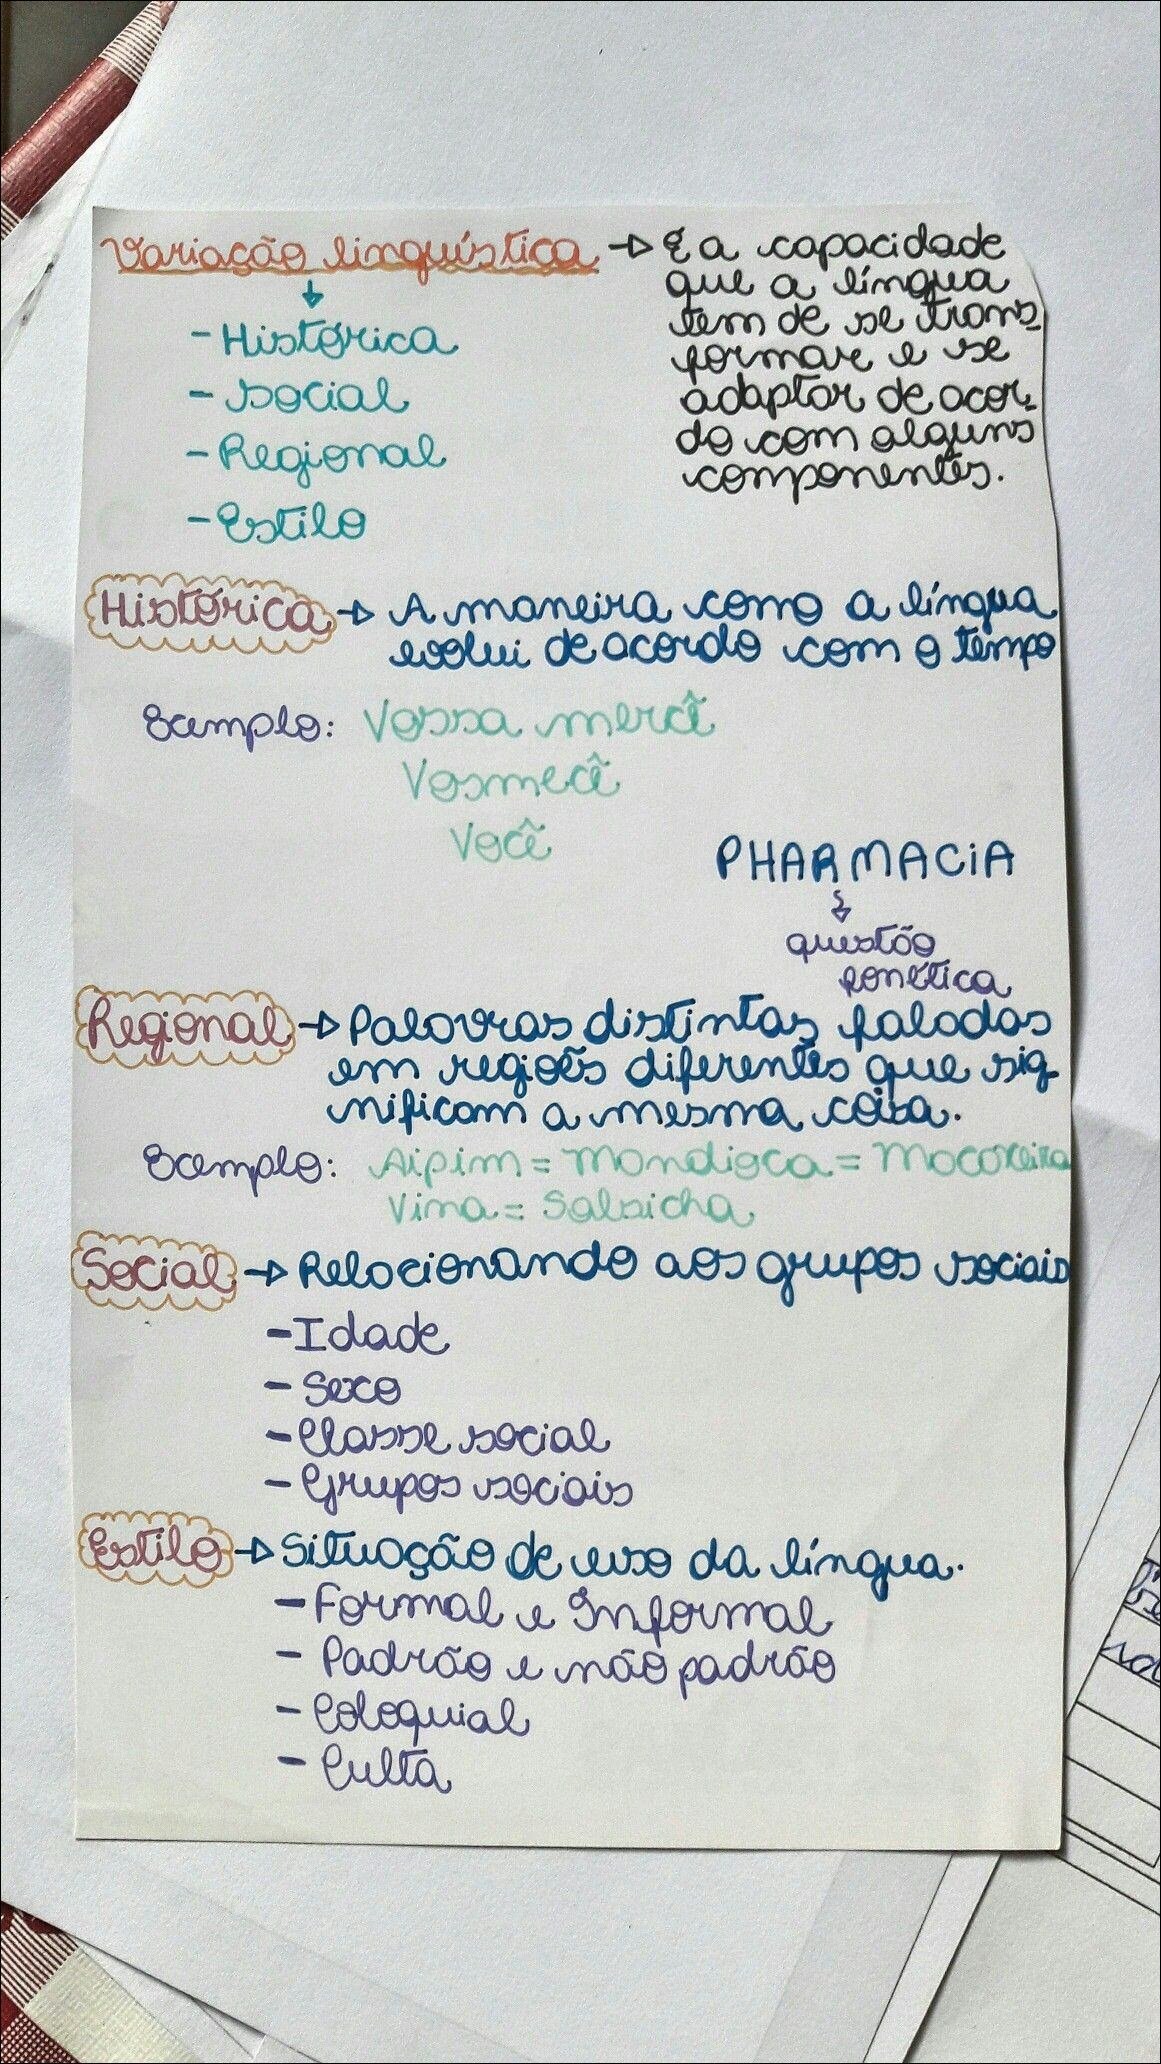 Variação linguística → É a capacidade
que a língua
tem de se trans
formar e se
adaptar de acor-
do com alguns
componentes.
- Histórica
- Social
- Regional
- Estilo
Histórica → A maneira como a língua
evolui de acordo com o tempo
Exemplo: Vossa mercê
Vosmecê
Você
PHARMACIA
questão
fonética
Regional → Palavras distintas faladas
em regiões diferentes que sig
nificam a mesma coisa.
Exemplo: Aipim = Mandioca = Macaxeira
Vina = Salsicha
Social → Relacionando aos grupos sociais
- Idade
- Sexo
- Classe social
- Grupos sociais
Estilo → Situação de uso da língua.
- Formal e Informal
- Padrão e não padrão
- Coloquial
- Culta